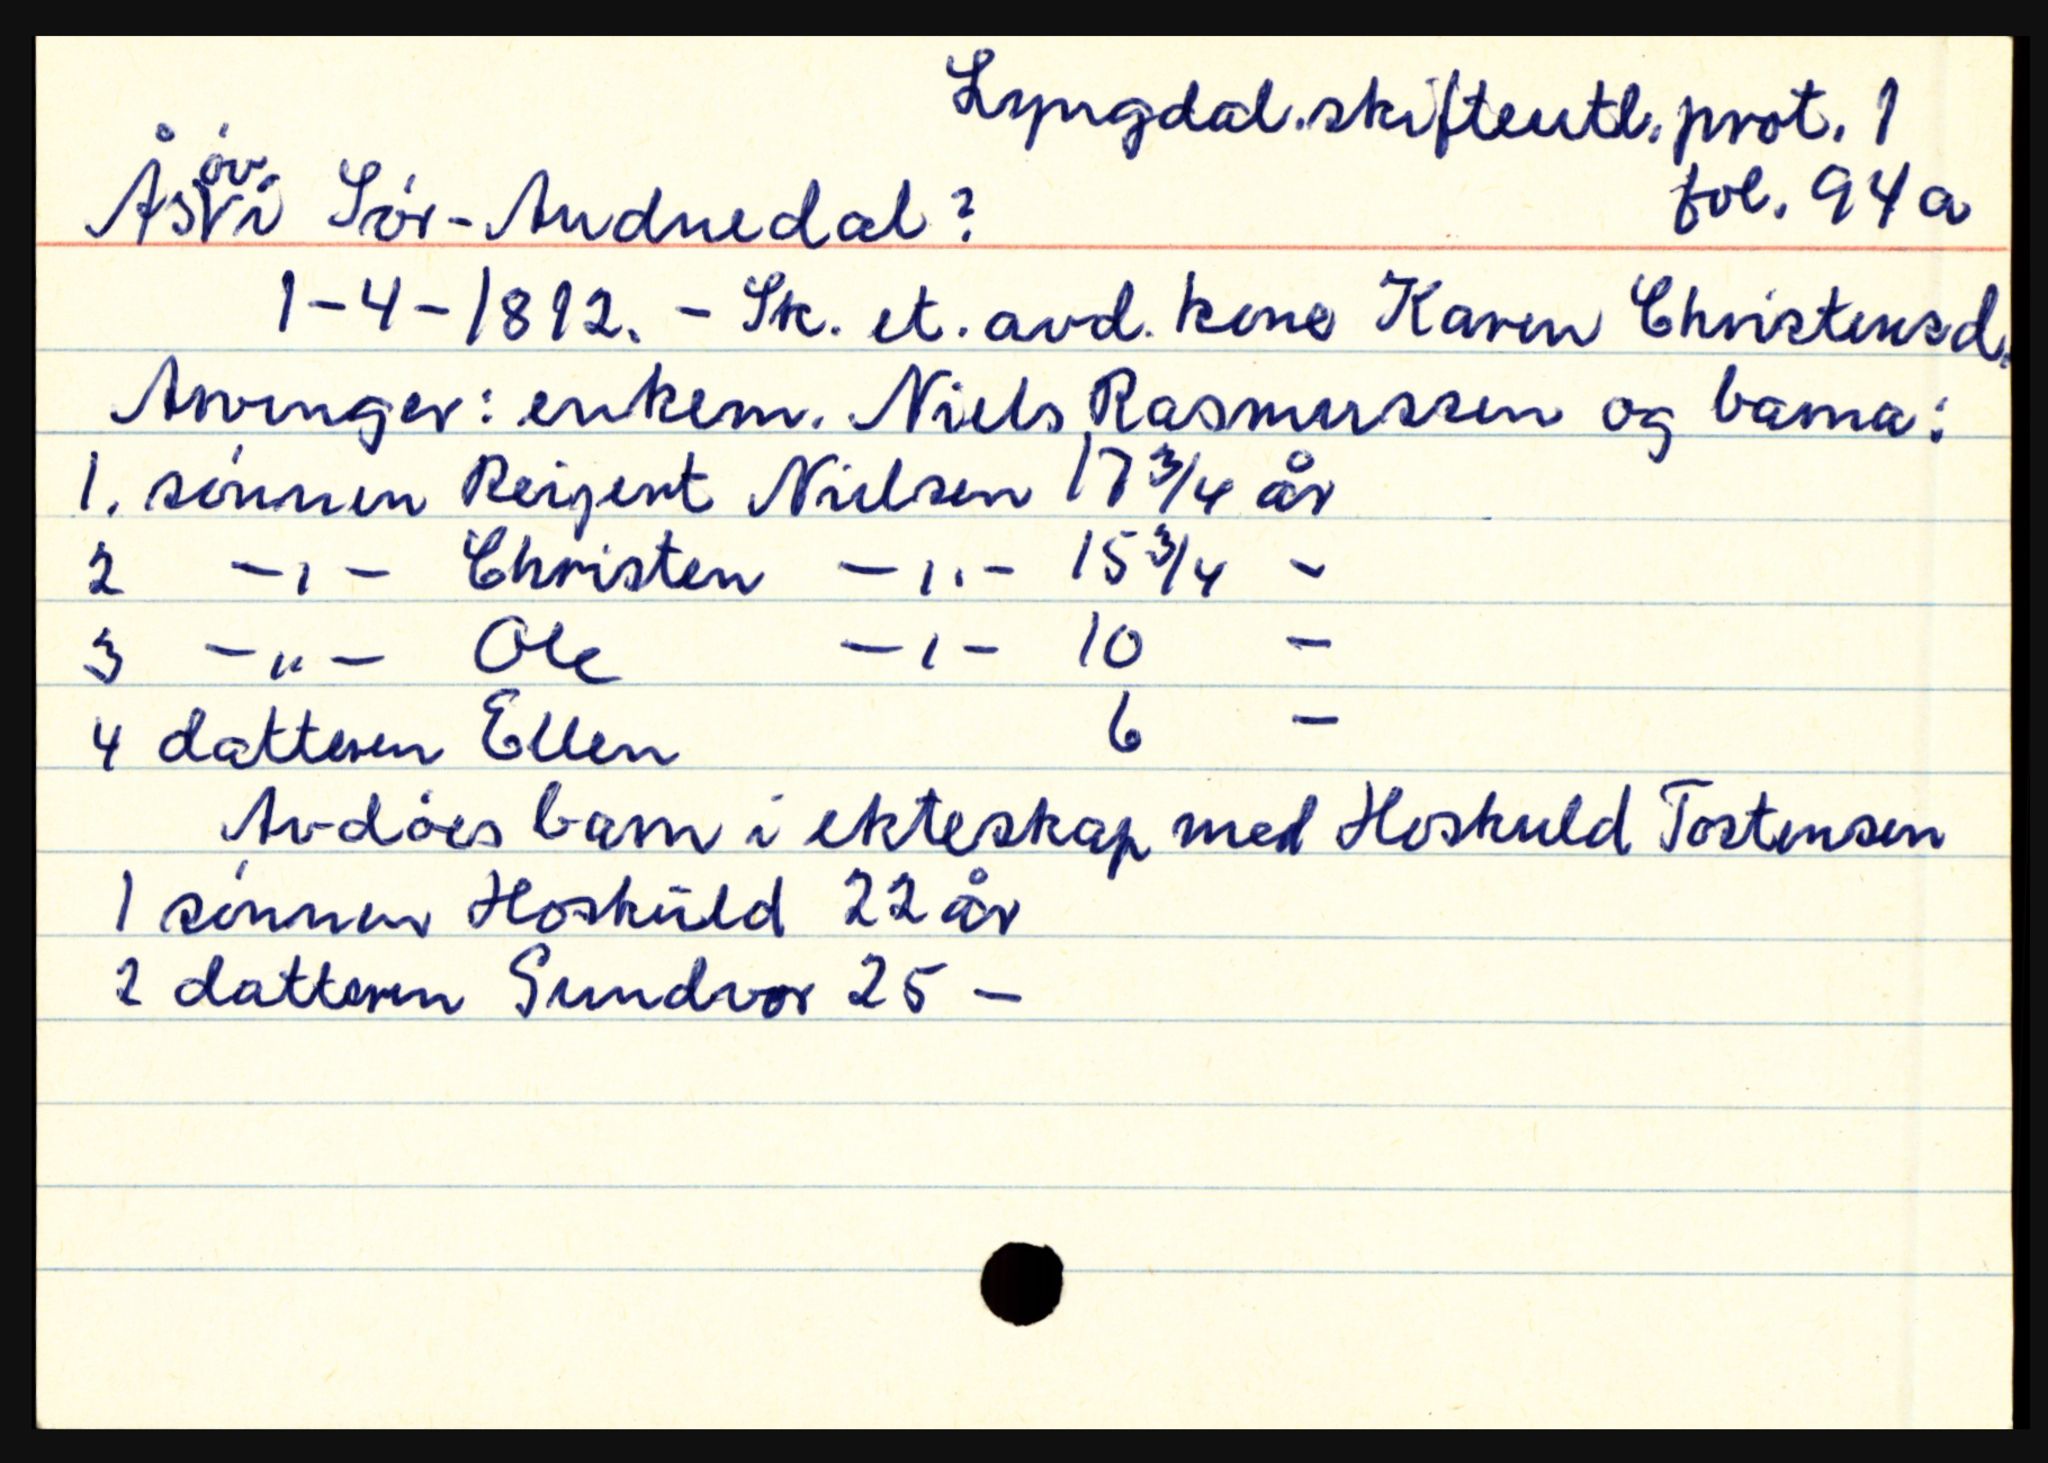 Lyngdal.skifteutl. prot. 1
fol. 94 a
øv.
Ås i Sør-Audnedal?
1-4-1812. - Sk. et. avd. kone Karen Christensd.
Arvinger: enkem. Niels Rasmussen og barna:
1. sønnen Reigert Nielsen 17 3/4 år
2 -"- Christen -"- 15 3/4 -
3 -"- Ole -"- 10 -
4 datteren Ellen 6 -
Avdøes barn i ekteskap med Hoskuld Tostensen
1 sønnen Hoskuld 22 år
2 datteren Gundvor 25 -